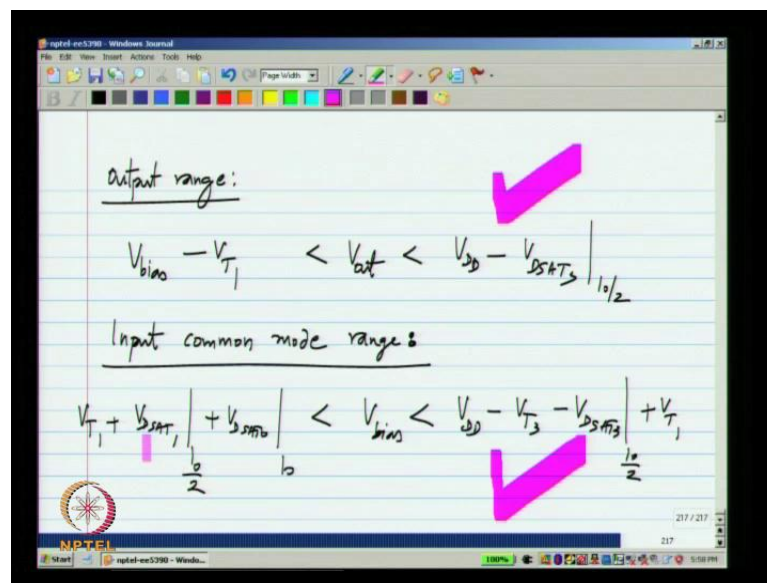 nptel-ee5390 - Windows Journal
File Edit View Insert Actions Tools Help
Page Width
Output range:
V_bias - V_T1 < V_out < V_DD - V_DSAT3 | I0/2
Input common mode range:
V_T1 + V_DSAT1 | I0/2 + V_DSAT0 | I0 < V_bias < V_DD - V_T3 - V_DSAT3 | I0/2 + V_T1
217 / 217
217
NPTEL
Start
nptel-ee5390 - Windo...
100%
5:58 PM